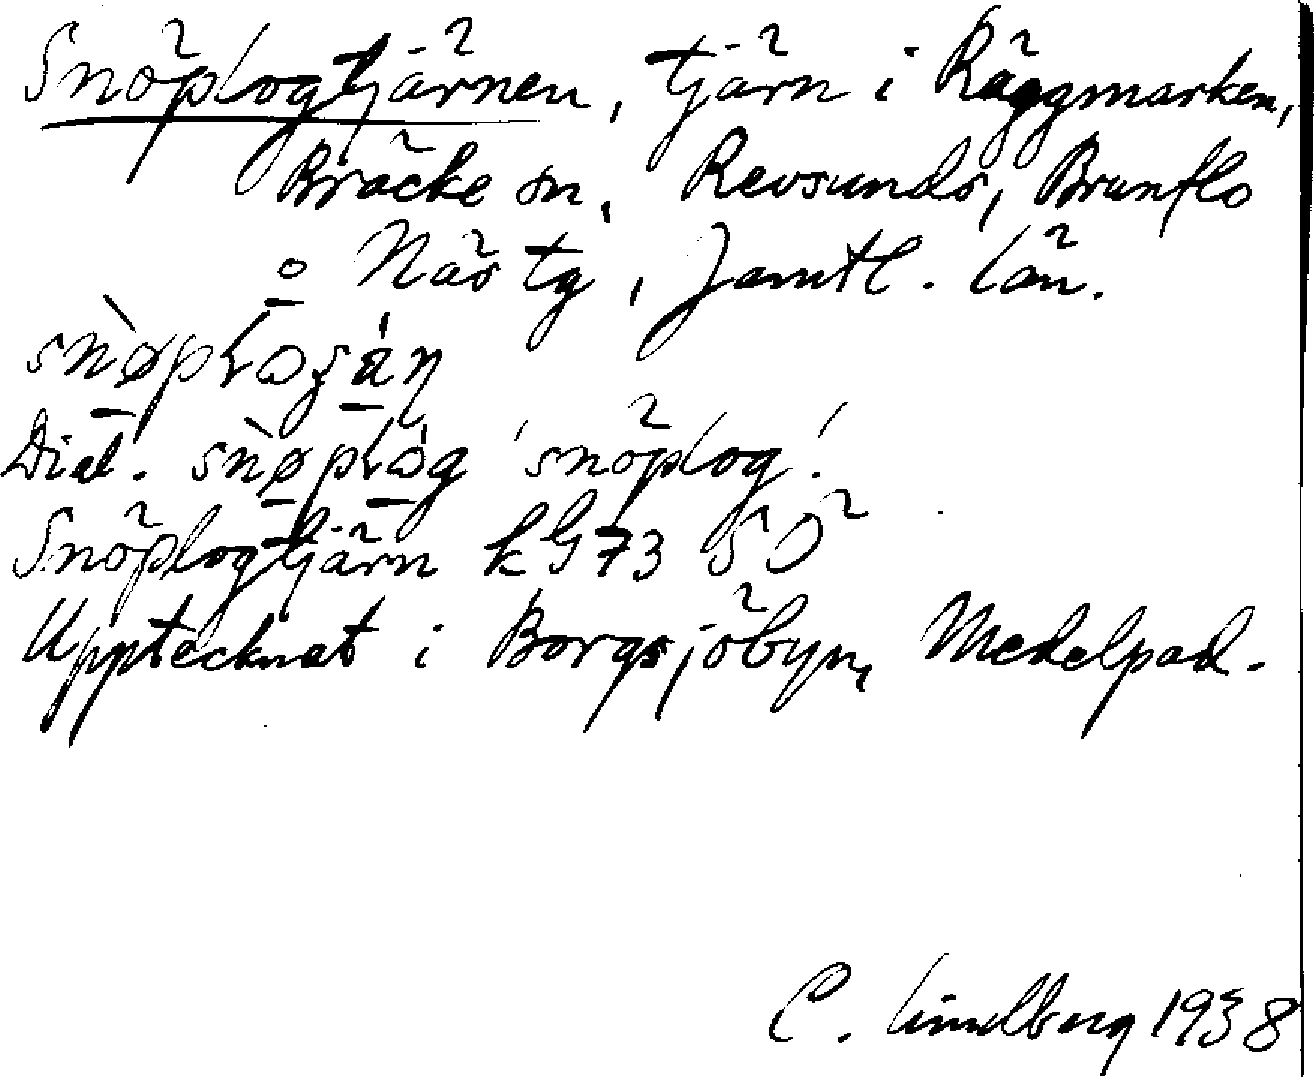 Snöplogtjärnen, tjärn i Räggmarken,
Bräcke sn, Revsunds, Brunflo
o Näs tg, Jämtl. län.
Dial. 'snöplog'.
Snöplogtjärn kG73 SÖ
Upptecknat i Borgsjöbyn, Medelpad.
C. Lindberg 1938